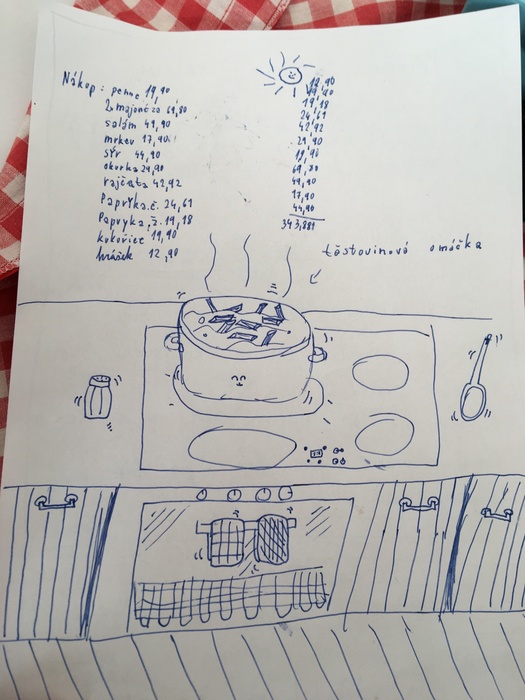 Nákup: penne 19,90
2x majonéza 69,80
salám 49,90
mrkev 17,90
sýr 44,90
okurka 29,90
rajčata 42,92
Papryka.č. 24,61
Papryka,ž. 19,18
kukuřice 19,90
hrášek 12,90
12,90
19,90
19,18
24,61
42,92
29,90
19,90
69,80
49,90
17,90
44,90
343,881
těstovinová omáčka